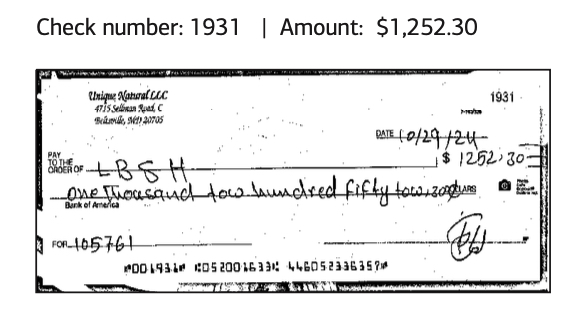 Check number: 1931 | Amount: $1,252.30
1931
Unique Natural LLC
4715 Sellman Road, C
Beltsville, MD 20705
DATE 10/29/24
PAY
TO THE
ORDER OF LBSH $ 1252.30
One Thousand tow hundred fifty tow. 30 DOLLARS
Bank of America
FOR 105761
⑈001931⑈ ⑆052001633⑆ 446052336357⑈